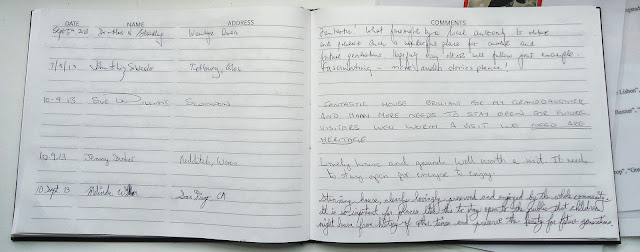 DATE NAME ADDRESS
Wantage Oxon
7/9/13
10-9-13 Sue Williams Swindon
10.9.13 Jenny Redditch, Worcs
10 Sept. 13 San Diego, CA
COMMENTS
Fantastic! What foresight by a local authority to obtain
and preserve such a wonderful place for current and
future generations. Hopefully many others will follow your example.
Fascinating - more Lavender stories please!
FANTASTIC HOUSE BRILLIANT FOR MY GRANDDAUGHTER
AND MANY MORE NEEDS TO STAY OPEN FOR FUTURE
VISITORS WELL WORTH A VISIT WE NEED ARE
HERITAGE
Lovely house and grounds well worth a visit. It needs
to stay open for everyone to enjoy.
Stunning house, clearly lovingly preserved and enjoyed by the whole community.
It is so important for places like this to stay open to the public that children
might learn from history of other times and preserve the beauty for future generations.